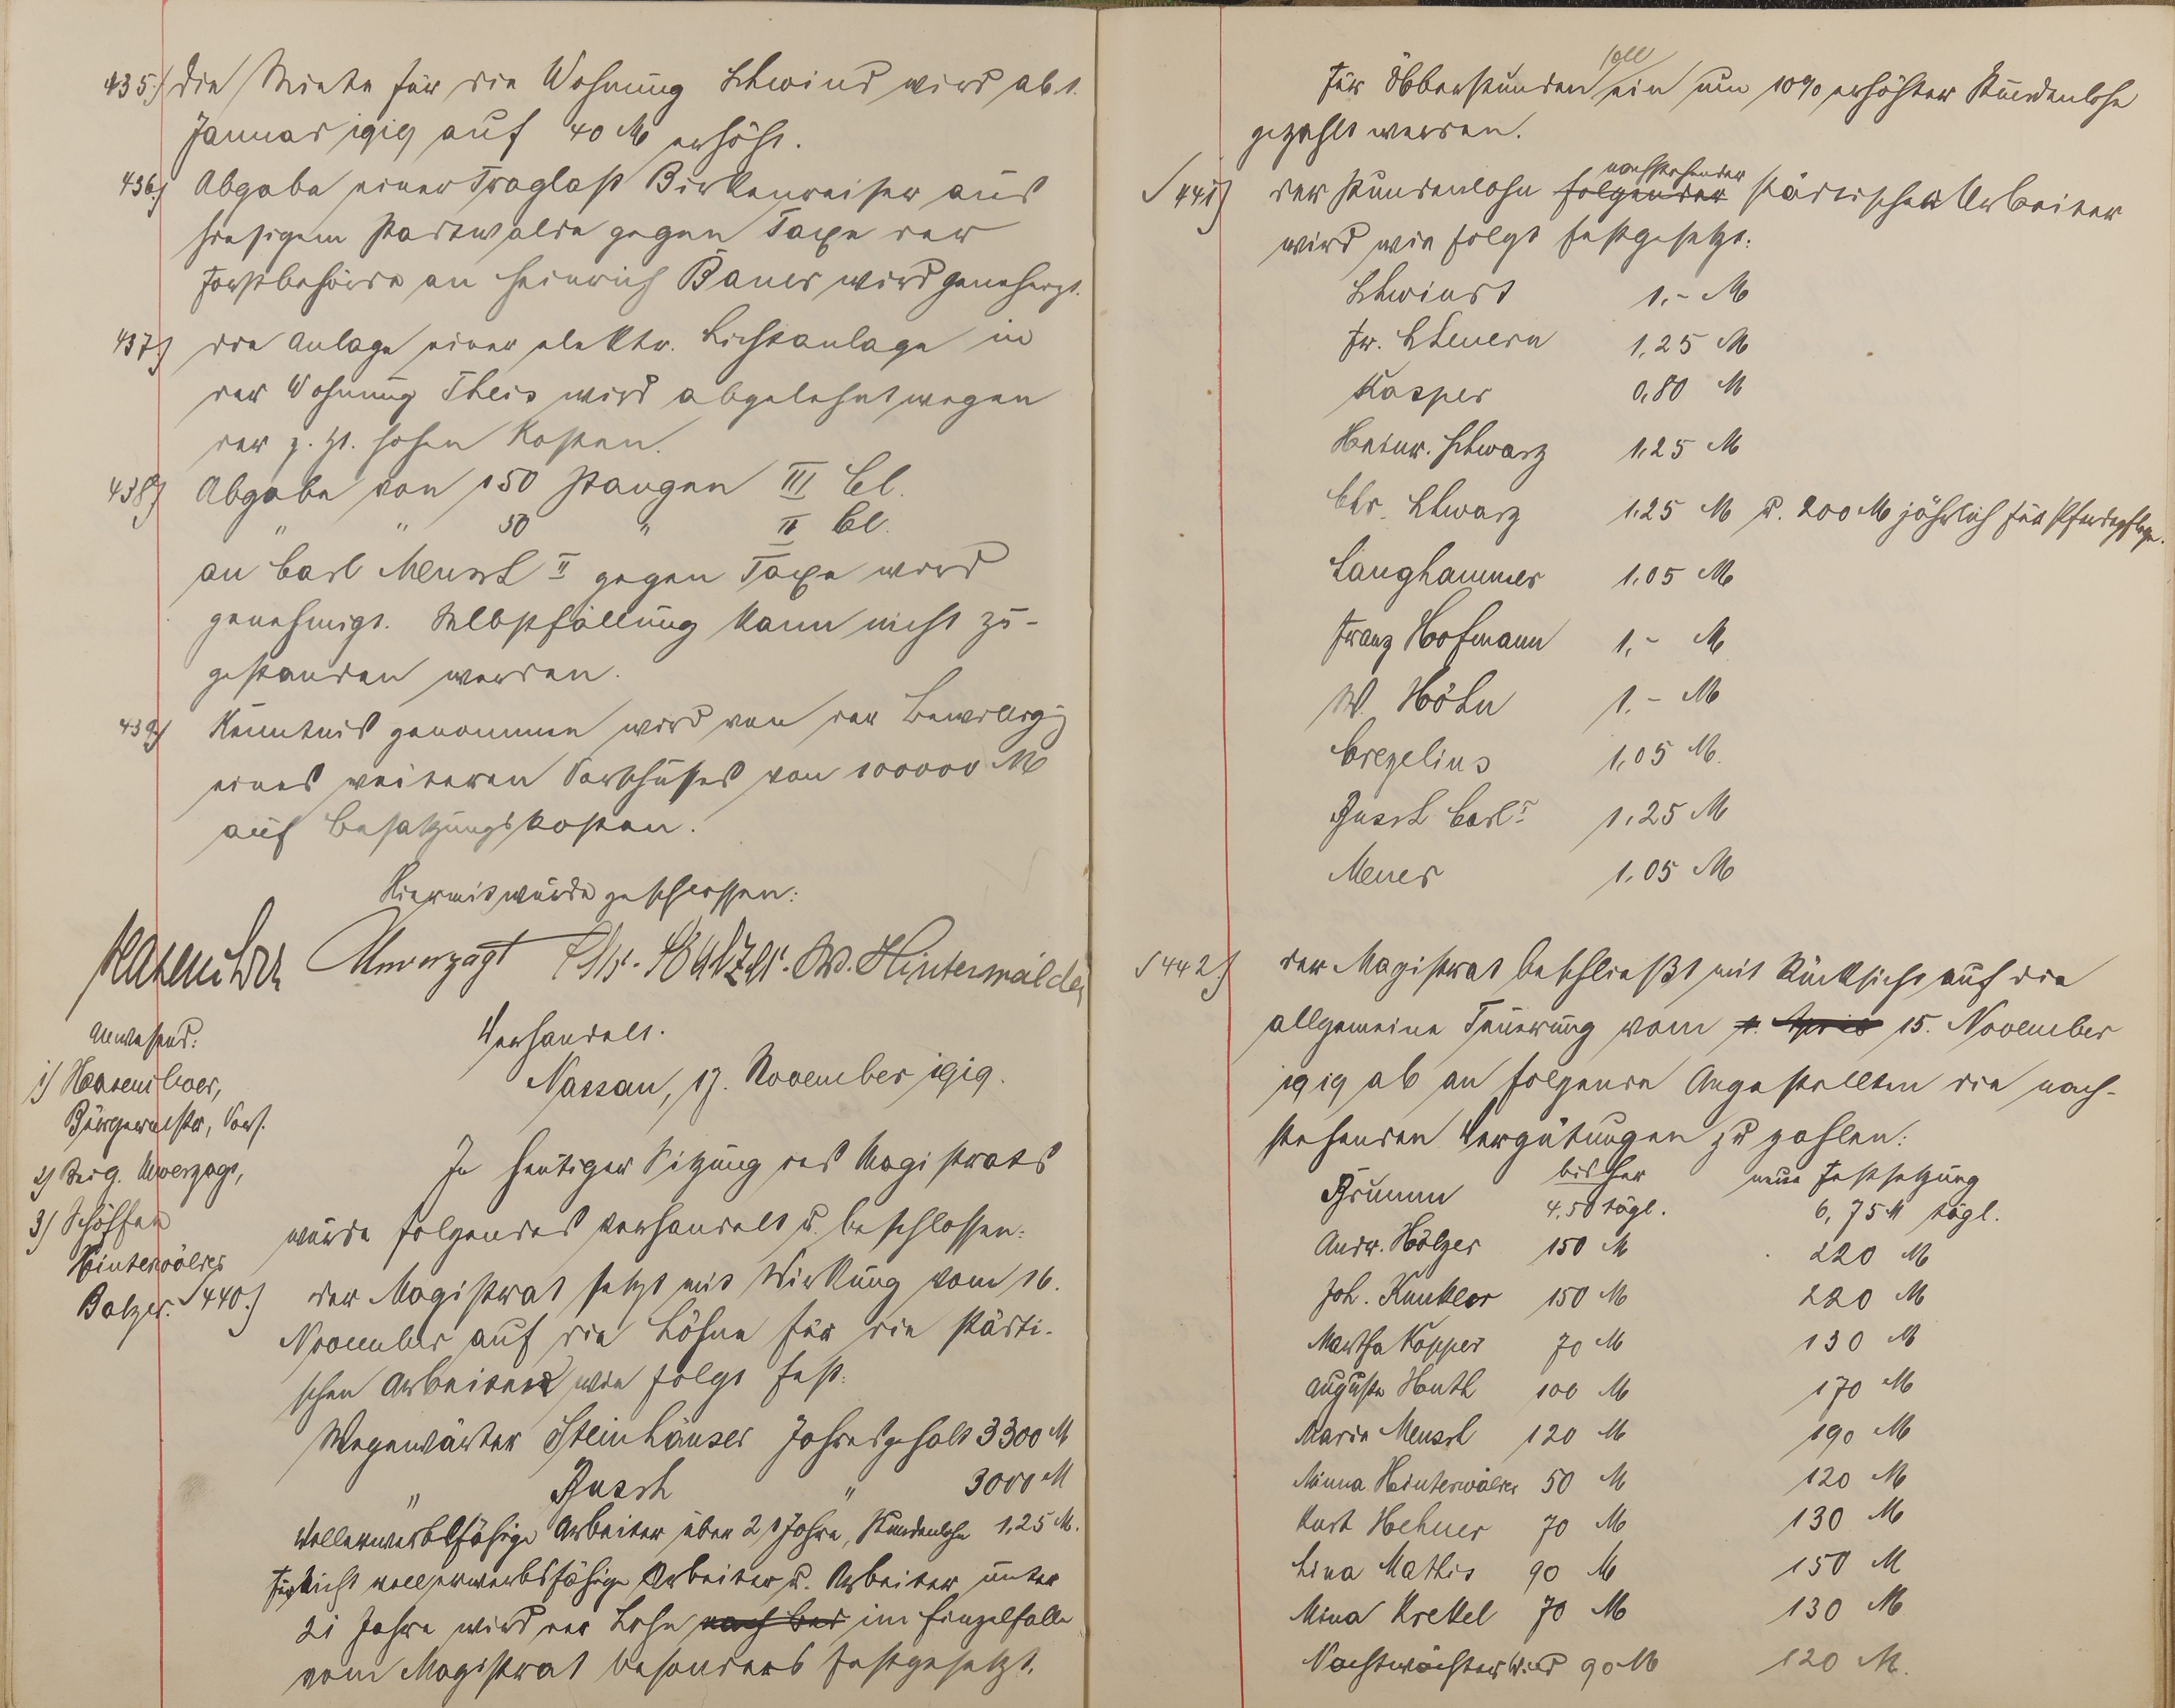 435.) Die Miete für die Wohnung Schwind wird ab 1.
Januar 1919 auf 40 M erhöht.
436.) Abgabe einer Traglast Birkenreiser aus
hiesigem Stadtwalde gegen Taxe der
Forstbehörde an Heinrich Bauer wird genehmigt.
437.) Die Anlage einer elektr. Lichtanlage in
der Wohnung Theis wird abgelehnt wegen
der z. Zt. hohen Kosten.
438.) Abgabe von 150 Stangen III Cl.
" " 50 " II Cl.
an Carl Meusch II gegen Taxe wird
genehmigt. Selbstfällung kann nicht zu-
gestanden werden.
439.) Kenntnis genommen wird von der Bewilligg
eines weiteren Vorschusses von 100000 M
auf Besatzungskosten.
Hiermit wurde geschlossen:
Hasenclever Unverzagt Chr. Balzer. W. Hinterwälder
Anwesend:
1) Hasenclever,
Bürgermstr, Vors.
2) Beig. Unverzagt,
3) Schöffen
Hinterwälder
Balzer.
Verhandelt.
Nassau, 17. November 1919.
In heutiger Sitzung des Magistrats
wurde folgendes verhandelt u. beschlossen:
440.) Der Magistrat setzt mit Wirkung vom 16.
November auf die Löhne für die städti-
schen Arbeiter wie folgt fest:
Wegewärter Steinhäuser Jahresgehalt 3300 M
" Busch " 3000 M
Vollerwerbsfähige Arbeiter über 21 Jahre, Stundenlohn 1,25 M.
Für nicht vollerwerbsfähige Arbeiter u. Arbeiter unter
21 Jahre wird der Lohn nach bes im Einzelfalle
vom Magistrat besonders festgesetzt.
soll
Für Überstunden ein um 10% erhöhter Stundenlohn
gezahlt werden.
nachstehender
441) Der Stundenlohn folgender städtischer Arbeiter
wird wie folgt festgesetzt:
Schwind 1.- M
Fr. Scheuern 1,25 M
Kasper 0,80 M
Heinr. Schwarz 1,25 M
Chr. Schwarz 1,25 M u. 200 M jährlich für Pferdepflege.
Langhammer 1,05 M
Franz Hofmann 1.- M
W. Höhn 1.- M
Crezelius 1,05 M.
Busch Carl I 1,25 M
Meuer 1,05 M
442.) Der Magistrat beschließt mit Rücksicht auf die
allgemeine Teuerung vom 1. April 15. November
1919 ab an folgende Angestellten die nach-
stehenden Vergütungen zu zahlen:
bisher neue Festsetzung
Brumm 4,50 tägl. 6,75 M tägl.
Andr. Hölzer 150 M 220 M
Joh. Kunkler 150 M 220 M
Martha Kasper 70 M 130 M
Auguste Huth 100 M 170 M
Maria Meusch 120 M 190 M
Minna Hinterwälder 50 M 120 M
Kurt Hehner 70 M 130 M
Lina Mathis 90 M 150 M
Mina Krekel 70 M 130 M
Nachtwächter Wied 90 M 120 M.